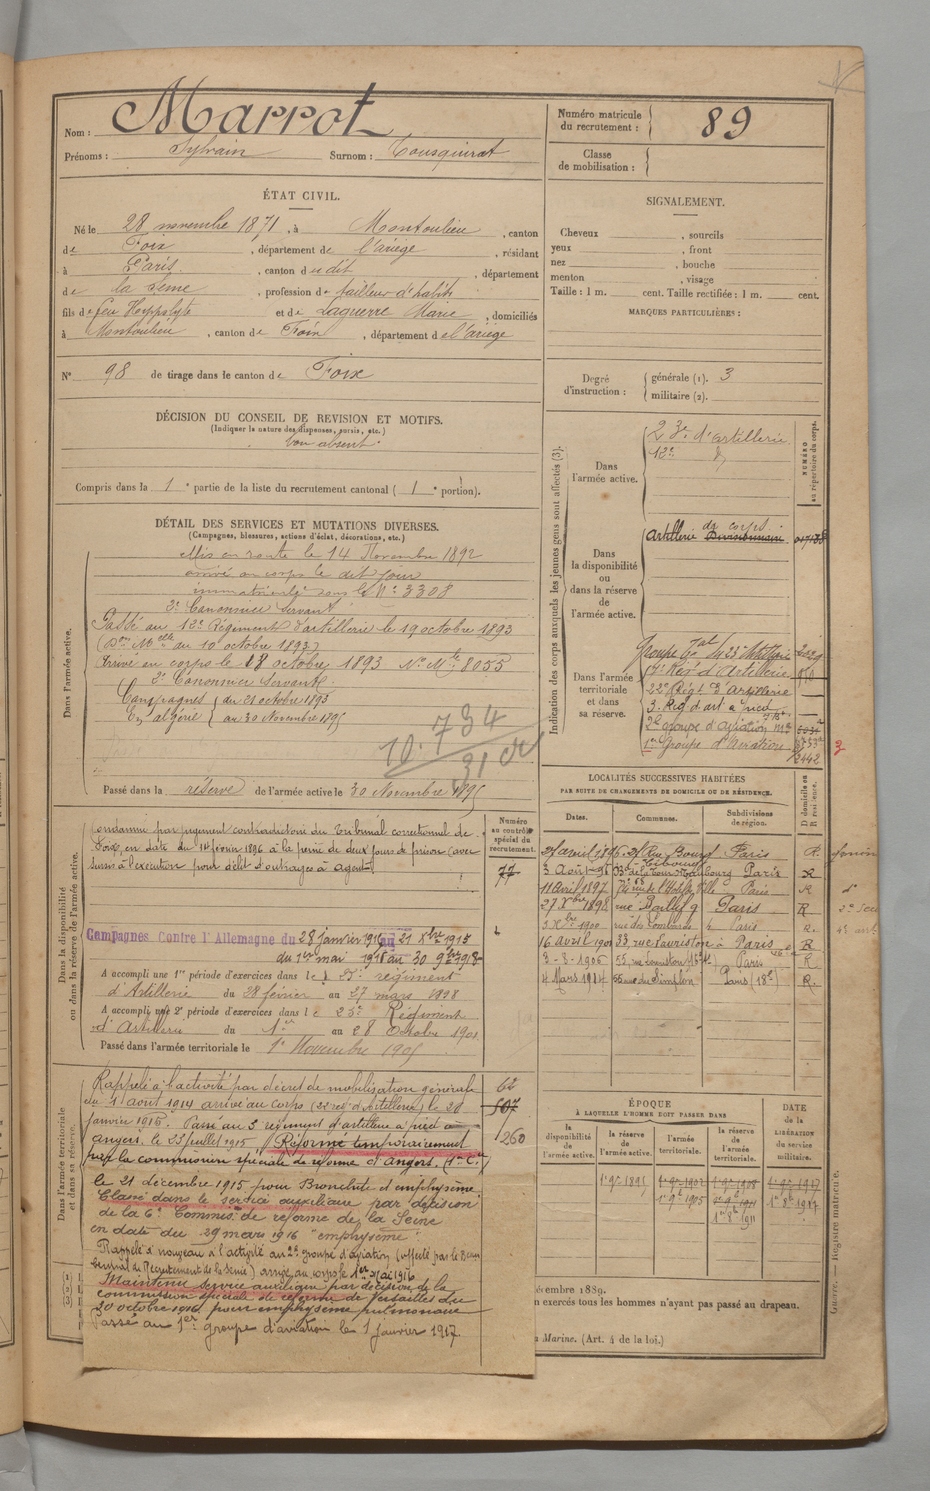 Nom : Marrot
Prénoms : Sylvain Surnom : Tousquirat
Numéro matricule du recrutement : 89
Classe de mobilisation :
ÉTAT CIVIL.
Né le 28 novembre 1871, à Montoulieu, canton
de Foix, département de l'ariège, résidant
à Paris, canton dudit, département
de la Seine, profession de tailleur d'habits
fils de feu Hyppolyte et de Laguerre Marie, domiciliés
à Montoulieu, canton de Foix, département de l'ariège
N° 98 de tirage dans le canton de Foix
SIGNALEMENT.
Cheveux , sourcils
yeux , front
nez , bouche
menton , visage
Taille : 1 m. cent. Taille rectifiée : 1 m. cent.
MARQUES PARTICULIÈRES :
Degré d'instruction : générale (1). 3
militaire (2).
DÉCISION DU CONSEIL DE REVISION ET MOTIFS.
(Indiquer la nature des dispenses, sursis, etc.)
bon absent
Compris dans la 1e partie de la liste du recrutement cantonal (1e portion).
DÉTAIL DES SERVICES ET MUTATIONS DIVERSES.
(Campagnes, blessures, actions d'éclat, décorations, etc.)
Dans l'armée active.
Mis en route le 14 Novembre 1892
arrivé au corps le dit jour
immatriculé sous le N° 3308
2e Canonnier Servant
Passé au 12e Régiment d'artillerie le 19 octobre 1893
(Don Mlle du 10 octobre 1893)
Arrivé en corps le 18 octobre 1893 N° Mle 8055
2e Canonnier Servant
Campagnes du 21 octobre 1893
En algérie au 30 Novembre 1895
10.734
Passé dans la réserve de l'armée active le 30 Novembre 1895
Indication des corps auxquels les jeunes gens sont affectés (3).
NUMÉRO au répertoire du corps.
Dans l'armée active.
23e d'artillerie
12e
Dans la disponibilité ou dans la réserve de l'armée active.
Artillerie de corps
Dans l'armée territoriale et dans sa réserve.
Groupe Tal du 23e Artillerie
7e Reg d'Artillerie
22e Régt d'Artillerie
3e Reg d'art à pied
2e groupe d'aviation
1er Groupe d'Aviation
2442
LOCALITÉS SUCCESSIVES HABITÉES
PAR SUITE DE CHANGEMENTS DE DOMICILE OU DE RÉSIDENCE.
D domicile ou R résidence.
Dates. Communes. Subdivisions de région.
Paris R.
3 Août 96 Paris R
11 Avril 1897 Paris R
27 Xbre 1898 rue Bailly 9 Paris R
3 Xbre 1900 rue des Lombards Paris R.
16 avril 1901 33, rue Lauriston à Paris R
Paris R
4 Mars 1914 55 rue du Simplon Paris (18e) R.
Dans la disponibilité ou dans la réserve de l'armée active.
Numéro au contrôle spécial du recrutement.
Condamné par jugement contradictoire du Tribunal correctionnel de
Foix en date du février 1896 à la peine de deux jours de prison (avec
sursis à l'exécution pour délit d'outrages à agent)
77
Campagnes Contre l'Allemagne du 28 janvier 1915 au 21 Xbre 1915
du 1er mai 1916 au 30 9bre 1918
A accompli une 1re période d'exercices dans le régiment
d'Artillerie du 28 février au 27 mars 1898
A accompli une 2e période d'exercices dans le 23e Régiment
d'Artillerie du 1er au 28 Octobre 1901
Passé dans l'armée territoriale le 1er Novembre 1905
Dans l'armée territoriale et dans sa réserve.
Rappelé à l'activité par décret de mobilisation générale
du 1 août 1914 arrivé au corps (22 reg d'Artillerie) le 28
janvier 1915. Passé au 3 régiment d'artillerie à pied à
angers, le 23 juillet 1915 Réformé temporairement
par la commission spéciale de réforme d'Angers,
le 21 décembre 1915 pour Bronchite et emphysème
Classé dans le service auxiliaire par décision
de la 6e Commis. de réforme de la Seine
en date du 29 mars 1916 "emphysème".
Rappelé à nouveau à l'activité au 2e groupe d'aviation (affecté par le Bureau
Central de Recrutement de la Seine) arrivé au corps le 1er Mai 1916
Maintenu service auxiliaire par décision de la
commission spéciale de réforme de Versailles du
20 octobre 1916 pour emphysème pulmonaire
Passé au 1er groupe d'aviation le 1 janvier 1917.
62
507
1260
ÉPOQUE
À LAQUELLE L'HOMME DOIT PASSER DANS
la disponibilité de l'armée active. la réserve de l'armée active. l'armée territoriale. la réserve de l'armée territoriale.
DATE de la LIBÉRATION du service militaire.
1er 9bre 1895
1er 9bre 1905
écembre 1889.
n exercés tous les hommes n'ayant pas passé au drapeau.
a Marine. (Art. 4 de la loi.)
Guerre. — Registre matricule.